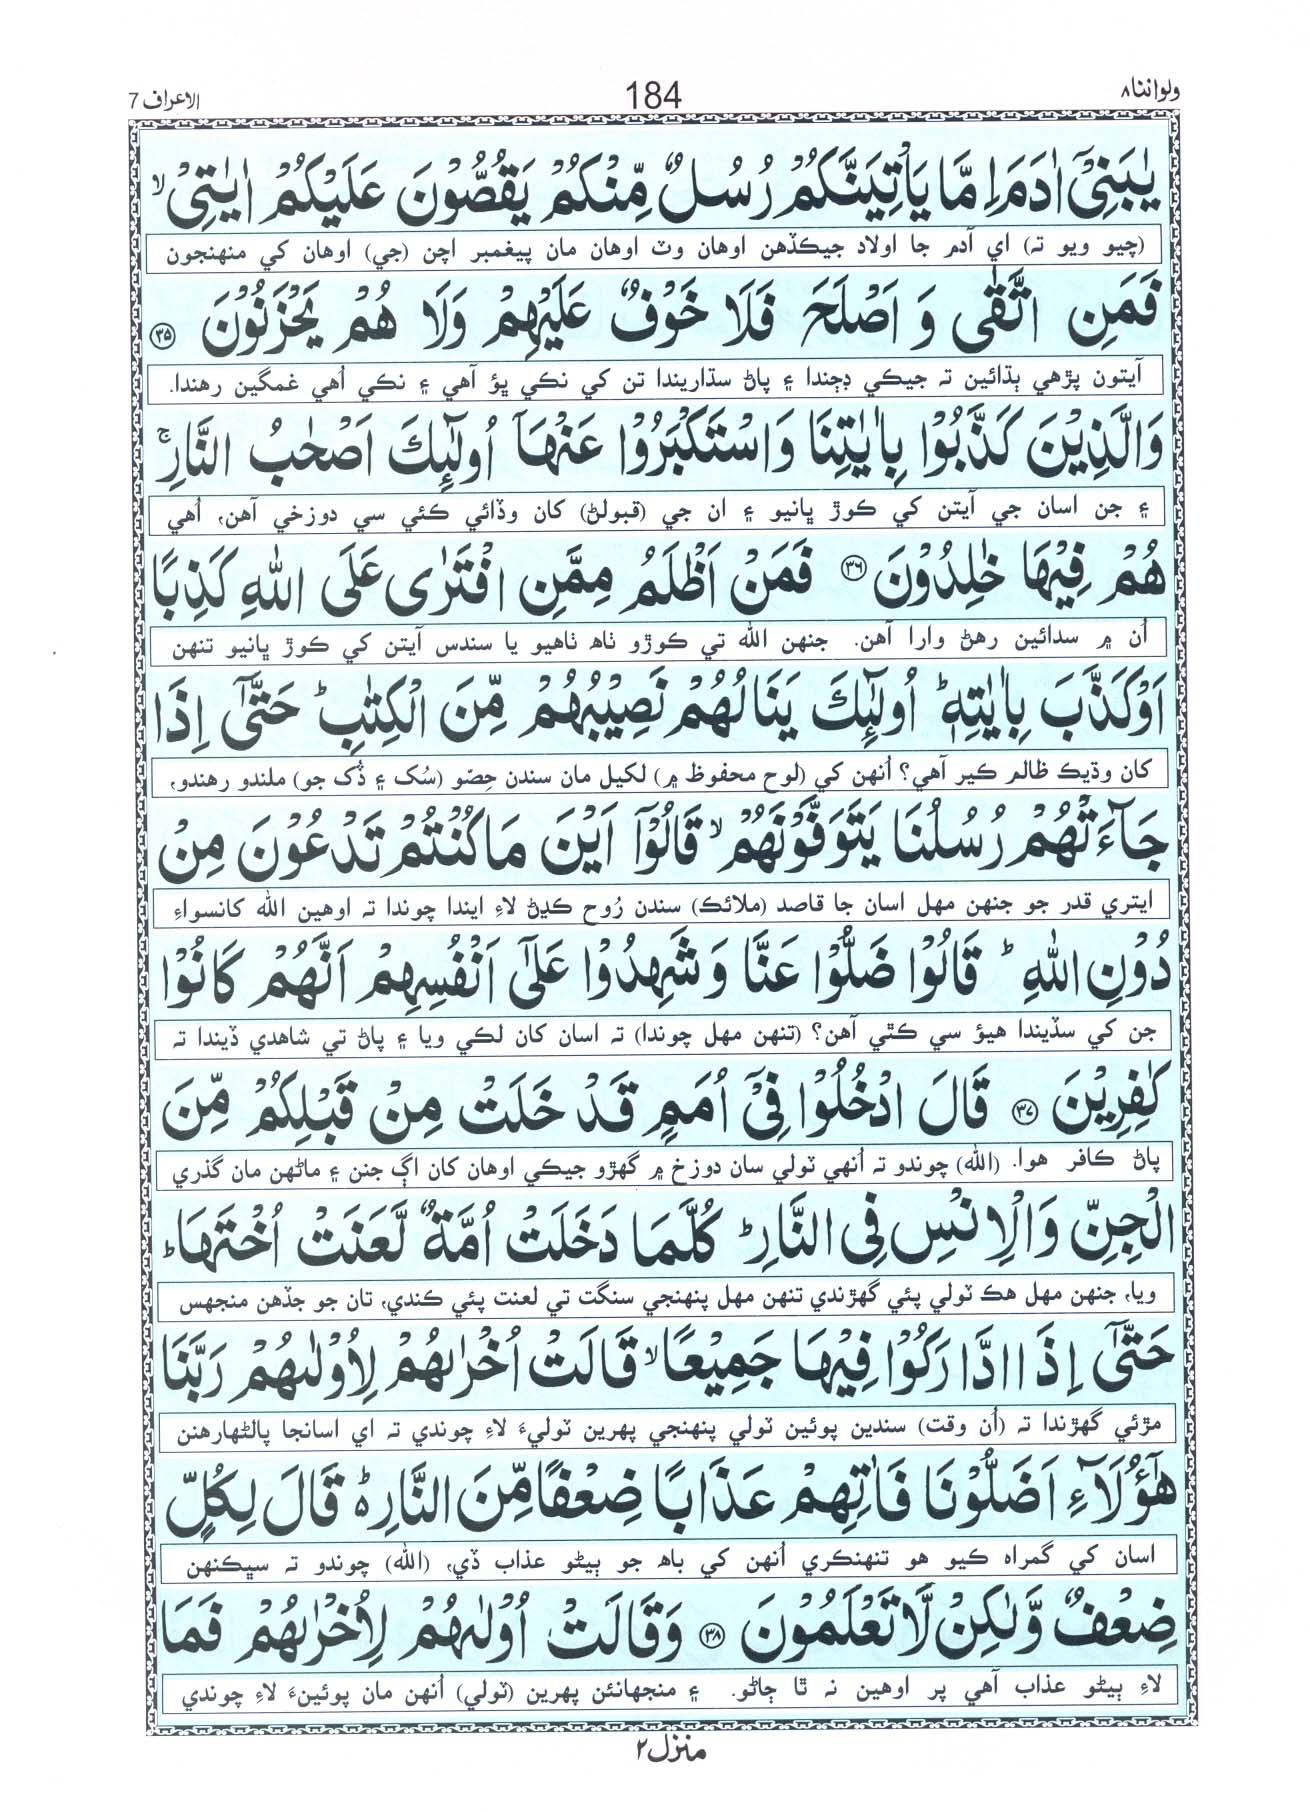 ولواننا ٨
184
الاعراف 7
يٰبَنِىْۤ اٰدَمَ اِمَّا يَاْتِيَنَّكُمْ رُسُلٌ مِّنْكُمْ يَقُصُّوْنَ عَلَيْكُمْ اٰيٰتِىْ ۙ
(چيو ويو تہ) اي آدم جا اولاد جيڪڏهن اوهان وٽ اوهان مان پيغمبر اچن (جي) اوهان کي منهنجون
فَمَنِ اتَّقٰى وَ اَصْلَحَ فَلَا خَوْفٌ عَلَيْهِمْ وَلَا هُمْ يَحْزَنُوْنَ ۝۳۵
آيتون پڙهي ٻڌائين تہ جيڪي ڊڄندا ۽ پاڻ سڌاريندا تن کي نڪي ڀؤ آهي ۽ نڪي اُهي غمگين رهندا.
وَالَّذِيْنَ كَذَّبُوْا بِاٰيٰتِنَا وَاسْتَكْبَرُوْا عَنْهَاۤ اُولٰٓئِكَ اَصْحٰبُ النَّارِ ۚ
۽ جن اسان جي آيتن کي ڪوڙ ڀانيو ۽ ان جي (قبولڻ) کان وڏائي ڪئي سي دوزخي آهن، اُهي
هُمْ فِيْهَا خٰلِدُوْنَ ۝۳۶ فَمَنْ اَظْلَمُ مِمَّنِ افْتَرٰى عَلَى اللّٰهِ كَذِبًا
اُن ۾ سدائين رهڻ وارا آهن. جنهن الله تي ڪوڙو ٺاھ ٺاهيو يا سندس آيتن کي ڪوڙ ڀانيو تنهن
اَوْكَذَّبَ بِاٰيٰتِهٖ ؕ اُولٰٓئِكَ يَنَالُهُمْ نَصِيْبُهُمْ مِّنَ الْكِتٰبِ ؕ حَتّٰۤى اِذَا
کان وڌيڪ ظالم ڪير آهي؟ اُنهن کي (لوح محفوظ ۾) لکيل مان سندن حِصّو (سُک ۽ ڏُک جو) ملندو رهندو،
جَآءَتْهُمْ رُسُلُنَا يَتَوَفَّوْنَهُمْ ۙ قَالُوْۤا اَيْنَ مَا كُنْتُمْ تَدْعُوْنَ مِنْ
ايتري قدر جو جنهن مهل اسان جا قاصد (ملائڪ) سندن رُوح ڪڍڻ لاءِ ايندا چوندا تہ اوهين الله کانسواءِ
دُوْنِ اللّٰهِ ؕ قَالُوْا ضَلُّوْا عَنَّا وَشَهِدُوْا عَلٰۤى اَنْفُسِهِمْ اَنَّهُمْ كَانُوْا
جن کي سڏيندا هيؤ سي ڪٿي آهن؟ (تنهن مهل چوندا) تہ اسان کان لڪي ويا ۽ پاڻ تي شاهدي ڏيندا تہ
كٰفِرِيْنَ ۝۳۷ قَالَ ادْخُلُوْا فِىْۤ اُمَمٍ قَدْ خَلَتْ مِنْ قَبْلِكُمْ مِّنَ
پاڻ ڪافر هوا. (الله) چوندو تہ اُنهي ٽولي سان دوزخ ۾ گھڙو جيڪي اوهان کان اڳ جنن ۽ ماڻهن مان گذري
الْجِنِّ وَالْاِنْسِ فِى النَّارِ ؕ كُلَّمَا دَخَلَتْ اُمَّةٌ لَّعَنَتْ اُخْتَهَا ؕ
ويا، جنهن مهل هڪ ٽولي پئي گھڙندي تنهن مهل پنهنجي سنگت تي لعنت پئي ڪندي، تان جو جڏهن منجهس
حَتّٰۤى اِذَا ادَّارَكُوْا فِيْهَا جَمِيْعًا ۙ قَالَتْ اُخْرٰىهُمْ لِاُوْلٰىهُمْ رَبَّنَا
مڙئي گھڙندا تہ (اُن وقت) سندين پوئين ٽولي پنهنجي پهرين ٽوليءَ لاءِ چوندي تہ اي اسانجا پالڻهارهنن
هٰۤؤُلَآءِ اَضَلُّوْنَا فَاٰتِهِمْ عَذَابًا ضِعْفًا مِّنَ النَّارِ ؕ قَالَ لِكُلٍّ
اسان کي گمراه ڪيو هو تنهنڪري اُنهن کي باھ جو ٻيڻو عذاب ڏي، (الله) چوندو تہ سڀڪنهن
ضِعْفٌ وَّلٰكِنْ لَّا تَعْلَمُوْنَ ۝۳۸ وَقَالَتْ اُوْلٰىهُمْ لِاُخْرٰىهُمْ فَمَا
لاءِ ٻيڻو عذاب آهي پر اوهين نہ ٿا ڄاڻو. ۽ منجهانئن پهرين (ٽولي) اُنهن مان پوئينءَ لاءِ چوندي
منزل ٢